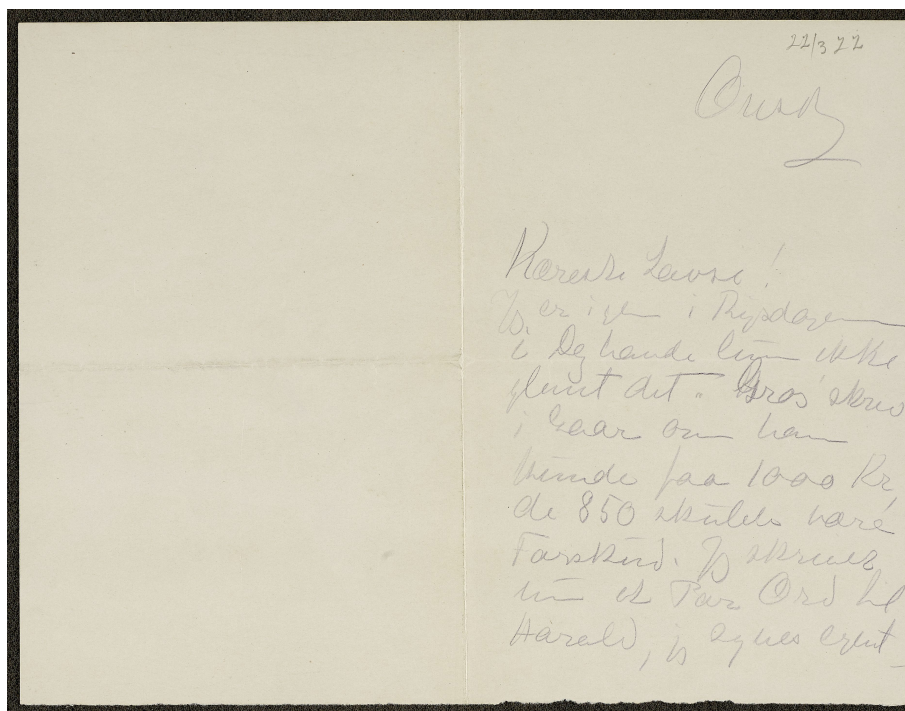 22/3 22
Onsdg
Kæreste Lausse!
Jeg er igen i Rigsdagen
i Dg havde ikke
glemt det. Gros' skrev
i Gaar om han
kunde faa 1000 Kr,
de 850 skulde være
Forskud. Jeg skriver
nu et Par Ord til
Harald, jeg synes egent-